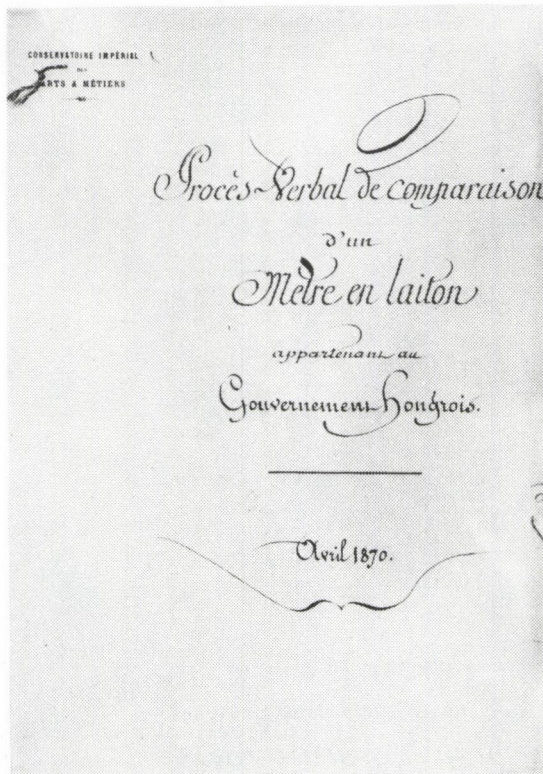 CONSERVATOIRE IMPÉRIAL
DES
ARTS & MÉTIERS
Procès-Verbal de comparaison
d'un
Mètre en laiton
appartenant au
Gouvernement Hongrois.
Avril 1870.